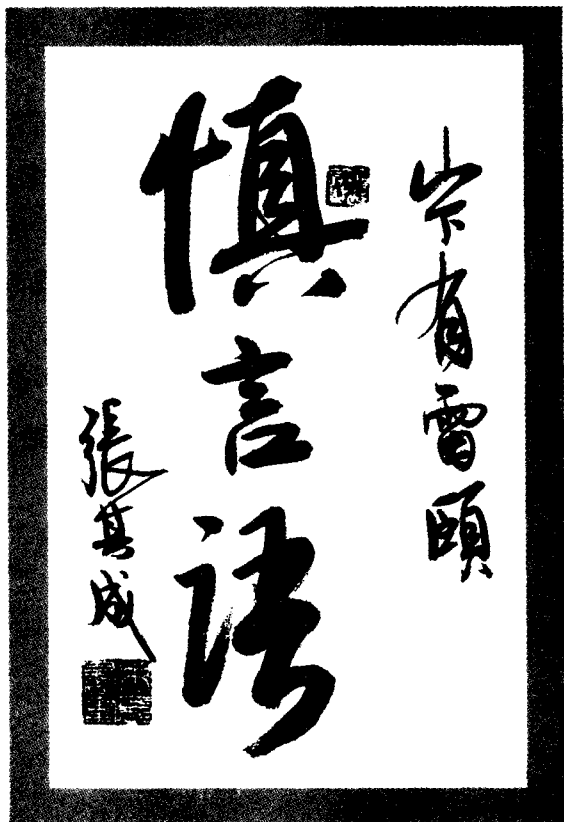 山下有雷頤
慎言语
張其成